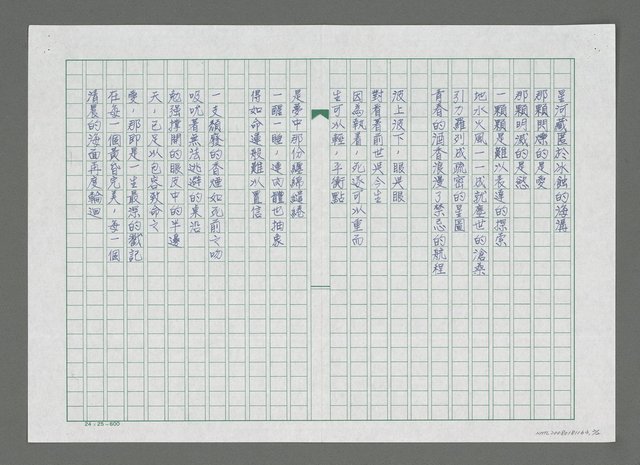 星河藏匿於冰蝕的海溝
那顆閃爍的是愛
那顆明滅的是慾
一顆顆是難以表達的探索
地水火風一一成就塵世的滄桑
引力羅列成疏密的星圖
青春的酒香浪漫了禁忌的航程
波上波下，眼與眼
對看著前世與今生
因為執着，死亦可以重而
生可以輕，平衡點
是夢中那份纏綿繾綣
一醒一睡，連肉體也抽象
得如命運般難以置信
一支頹廢的香煙如死前之吻
吸吮着無法逃避的業沿
勉強撐開的眼皮中的半邊
天，已足以包容致命之
愛，那即是一生最深的戳記
在每一個黃昏完美，每一個
清晨的海面再度輪迴
24×25=600